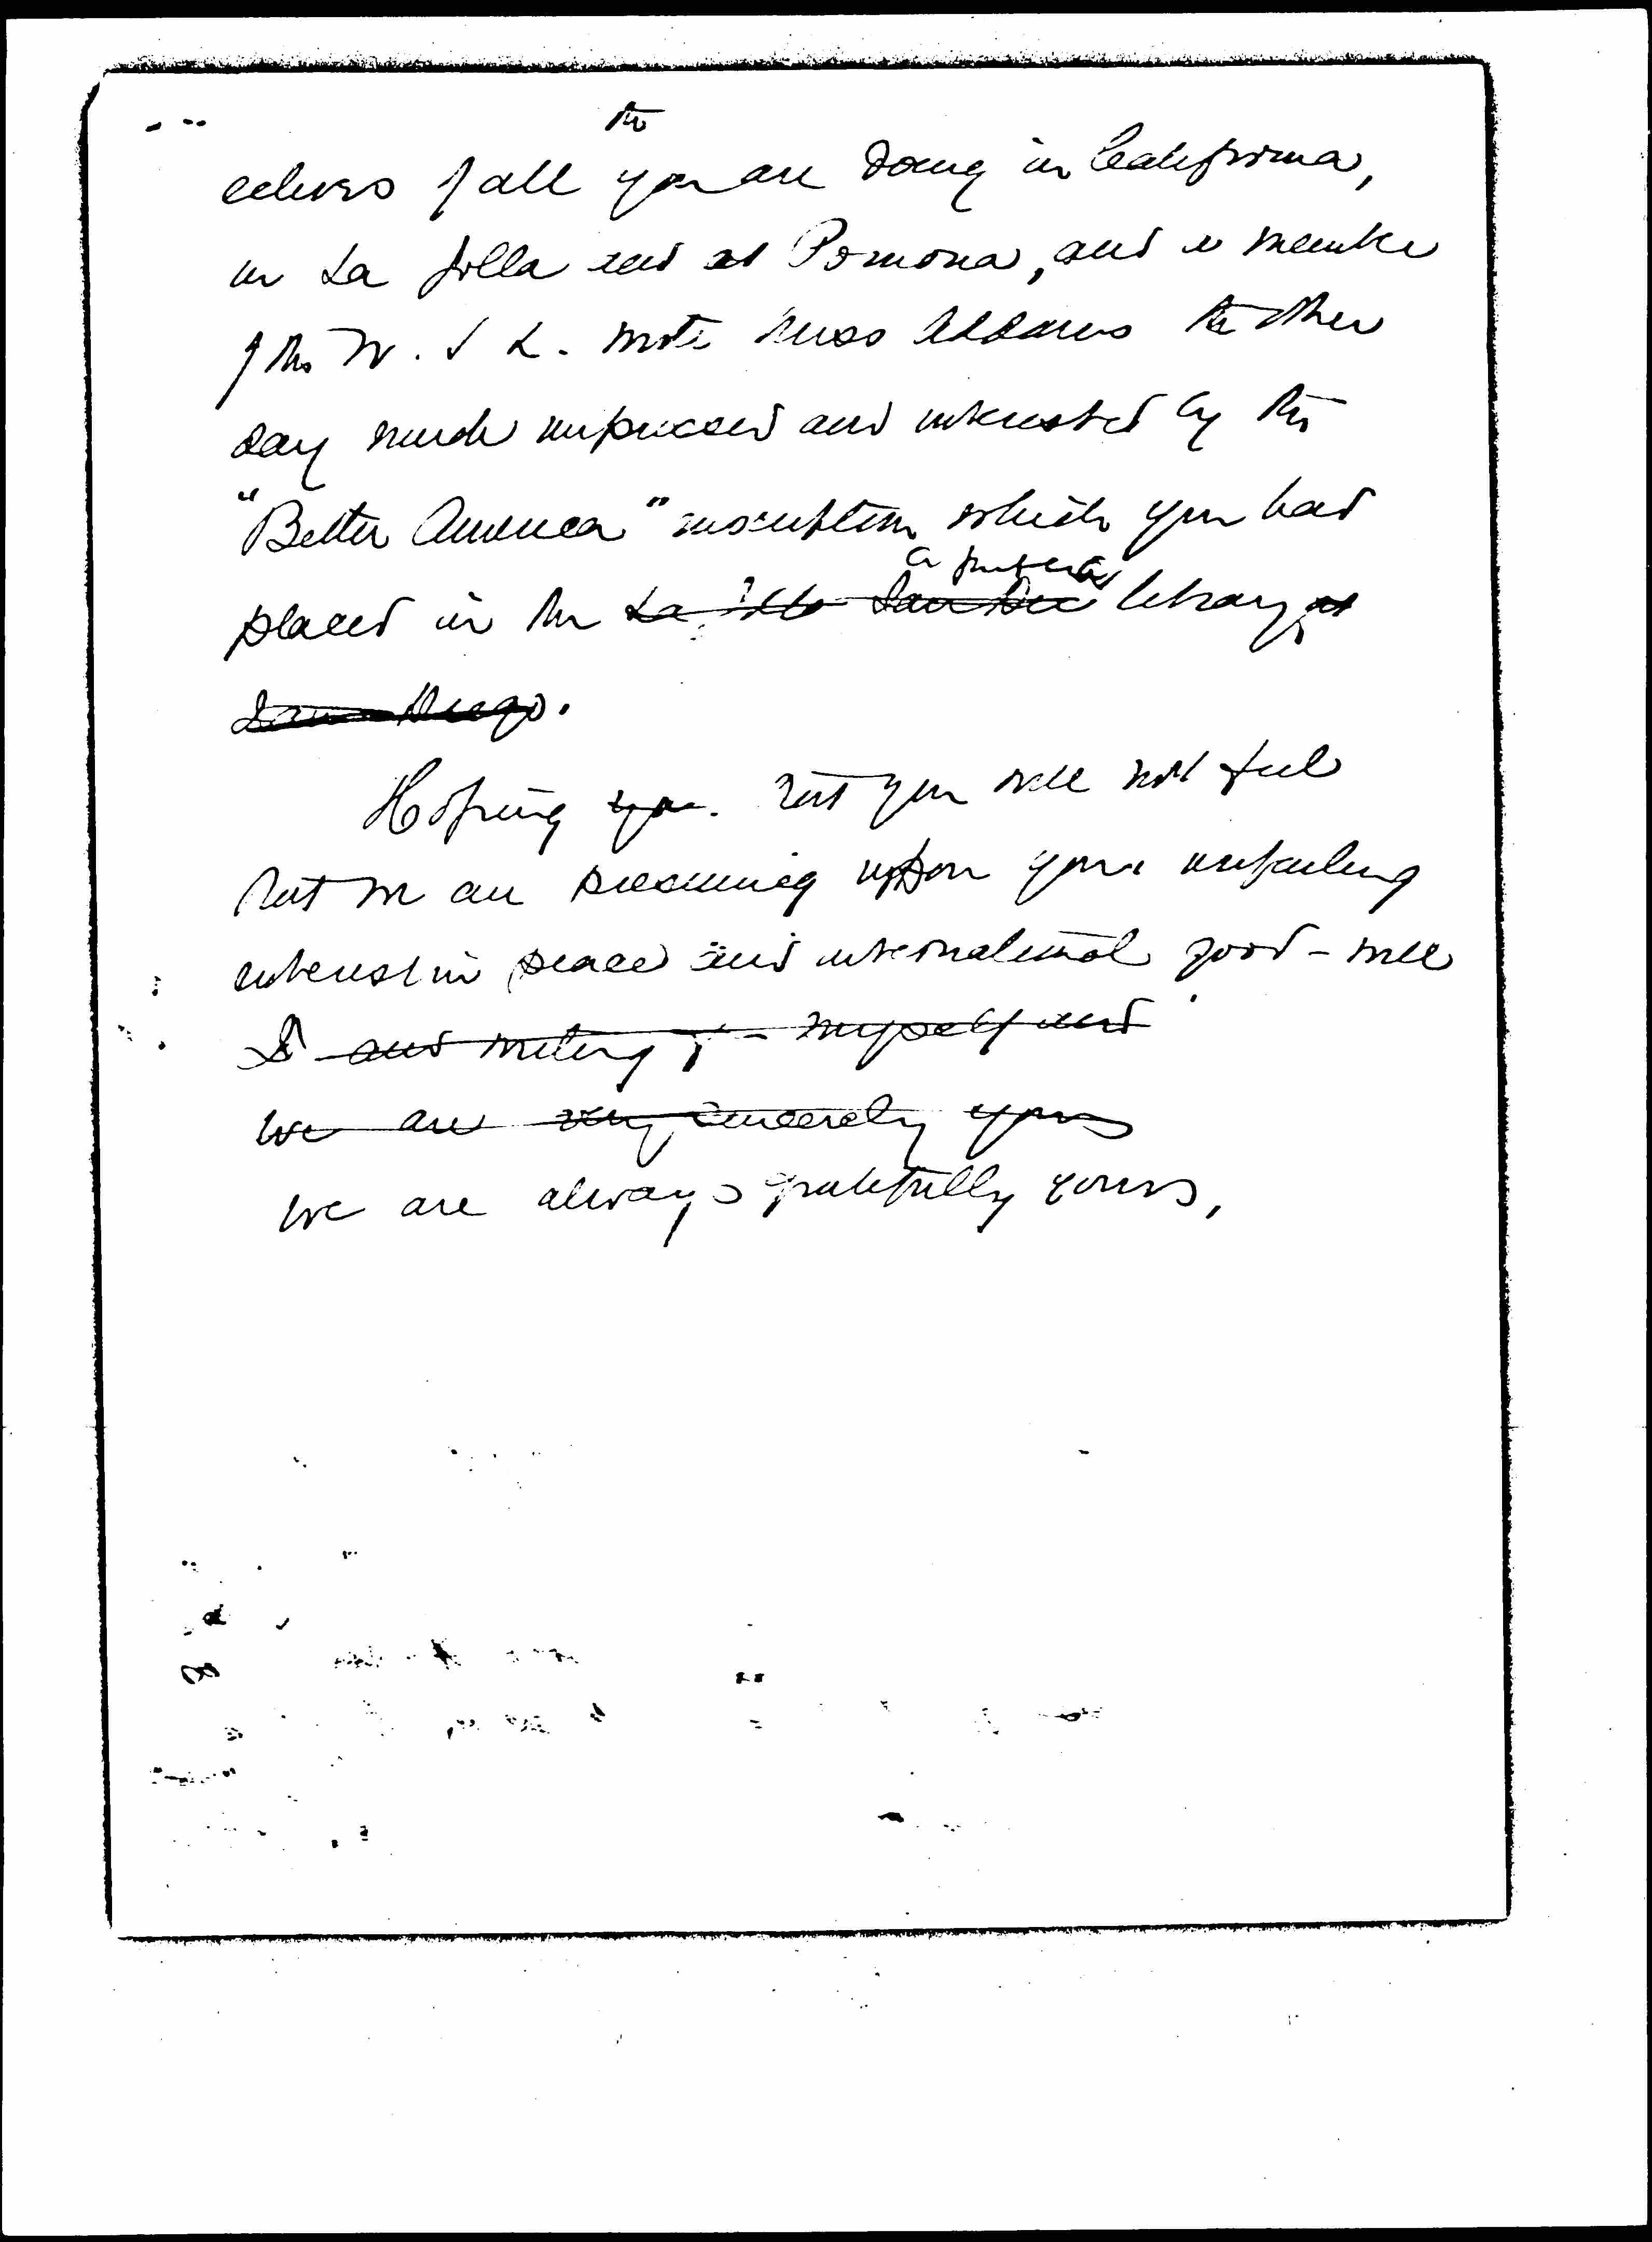 the
echoes of all you are doing in California,
in La Jolla and at Pomona, and a member
of the W. I L. wrote Miss Addams the other
day much impressed and interested by the
"Better America" inscription which you had
a public
placed in the La Jolla San Die library at
San Diego.
Hoping you. that you will not feel
that we are presuming upon your unfailing
interest in peace and international good-will
I and myself and
we are very sincerely yours
we are always gratefully yours,